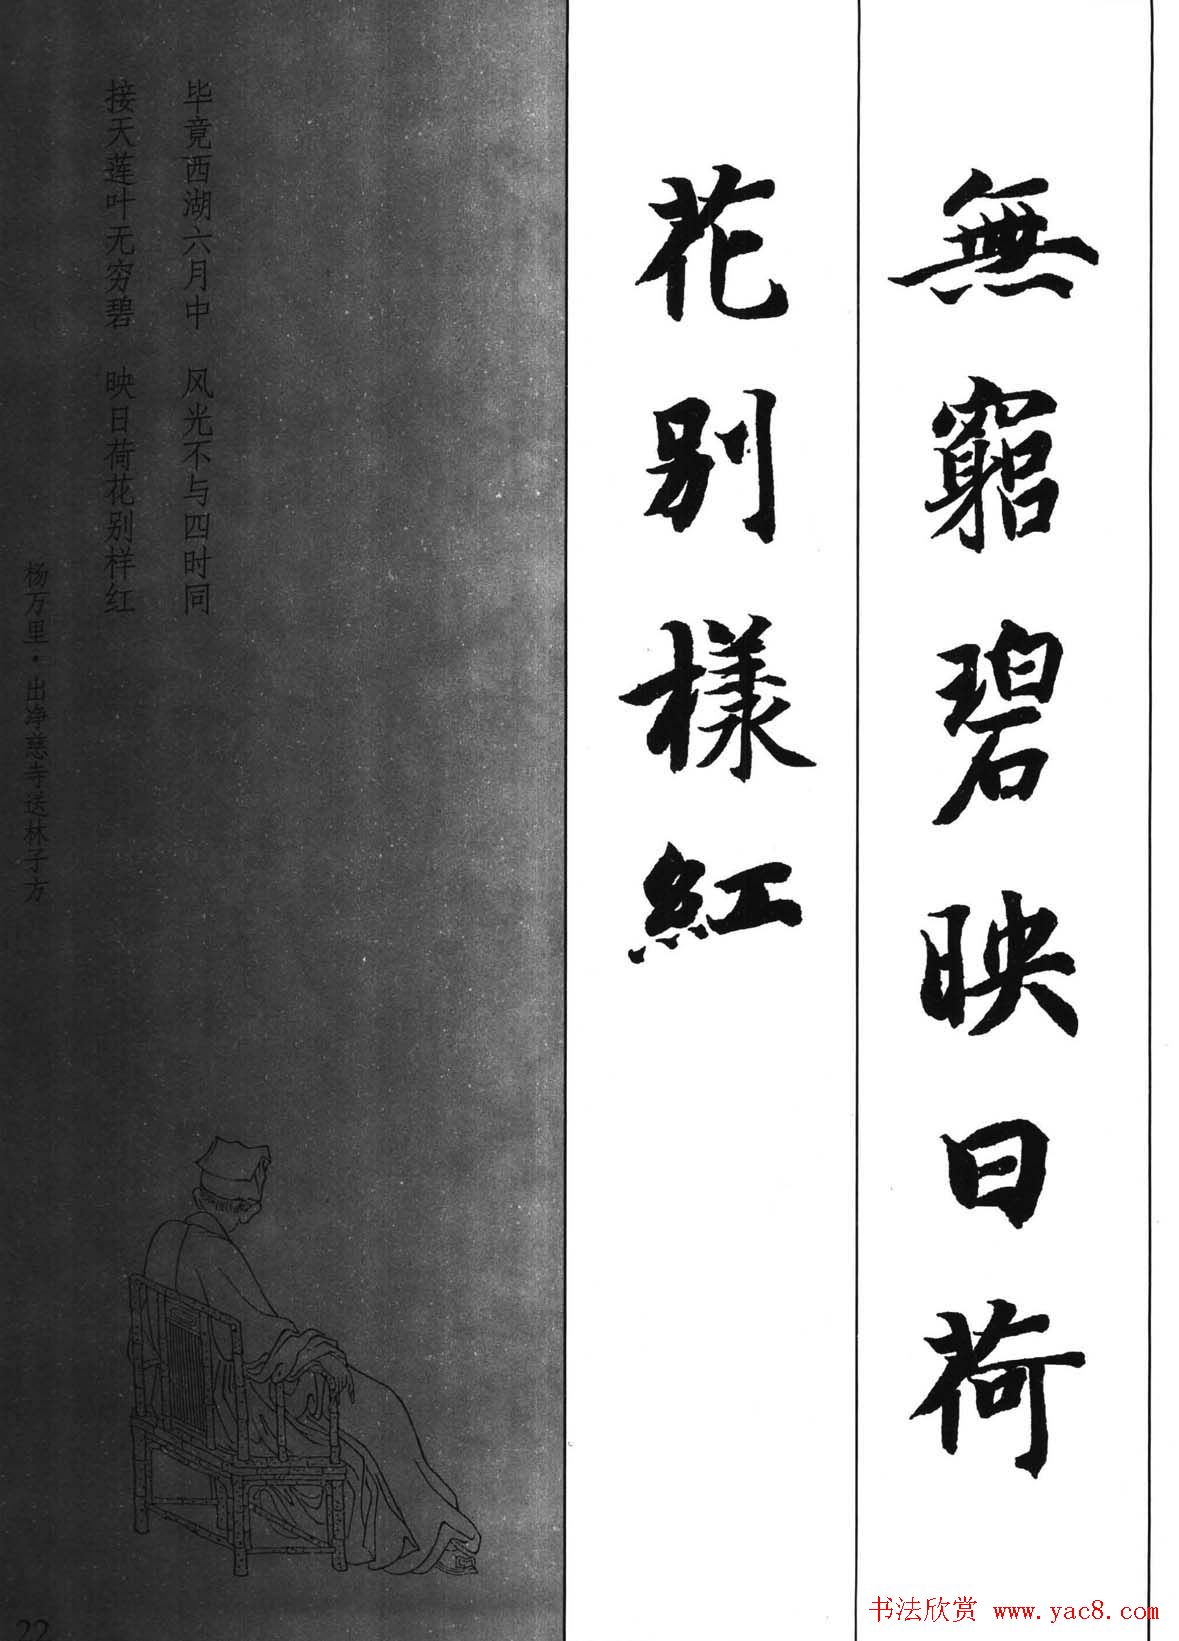 無窮碧映日荷
花别樣紅
毕竟西湖六月中　风光不与四时同
接天莲叶无穷碧　映日荷花别样红
杨万里·出净慈寺送林子方
22
书法欣赏 www.yac8.com